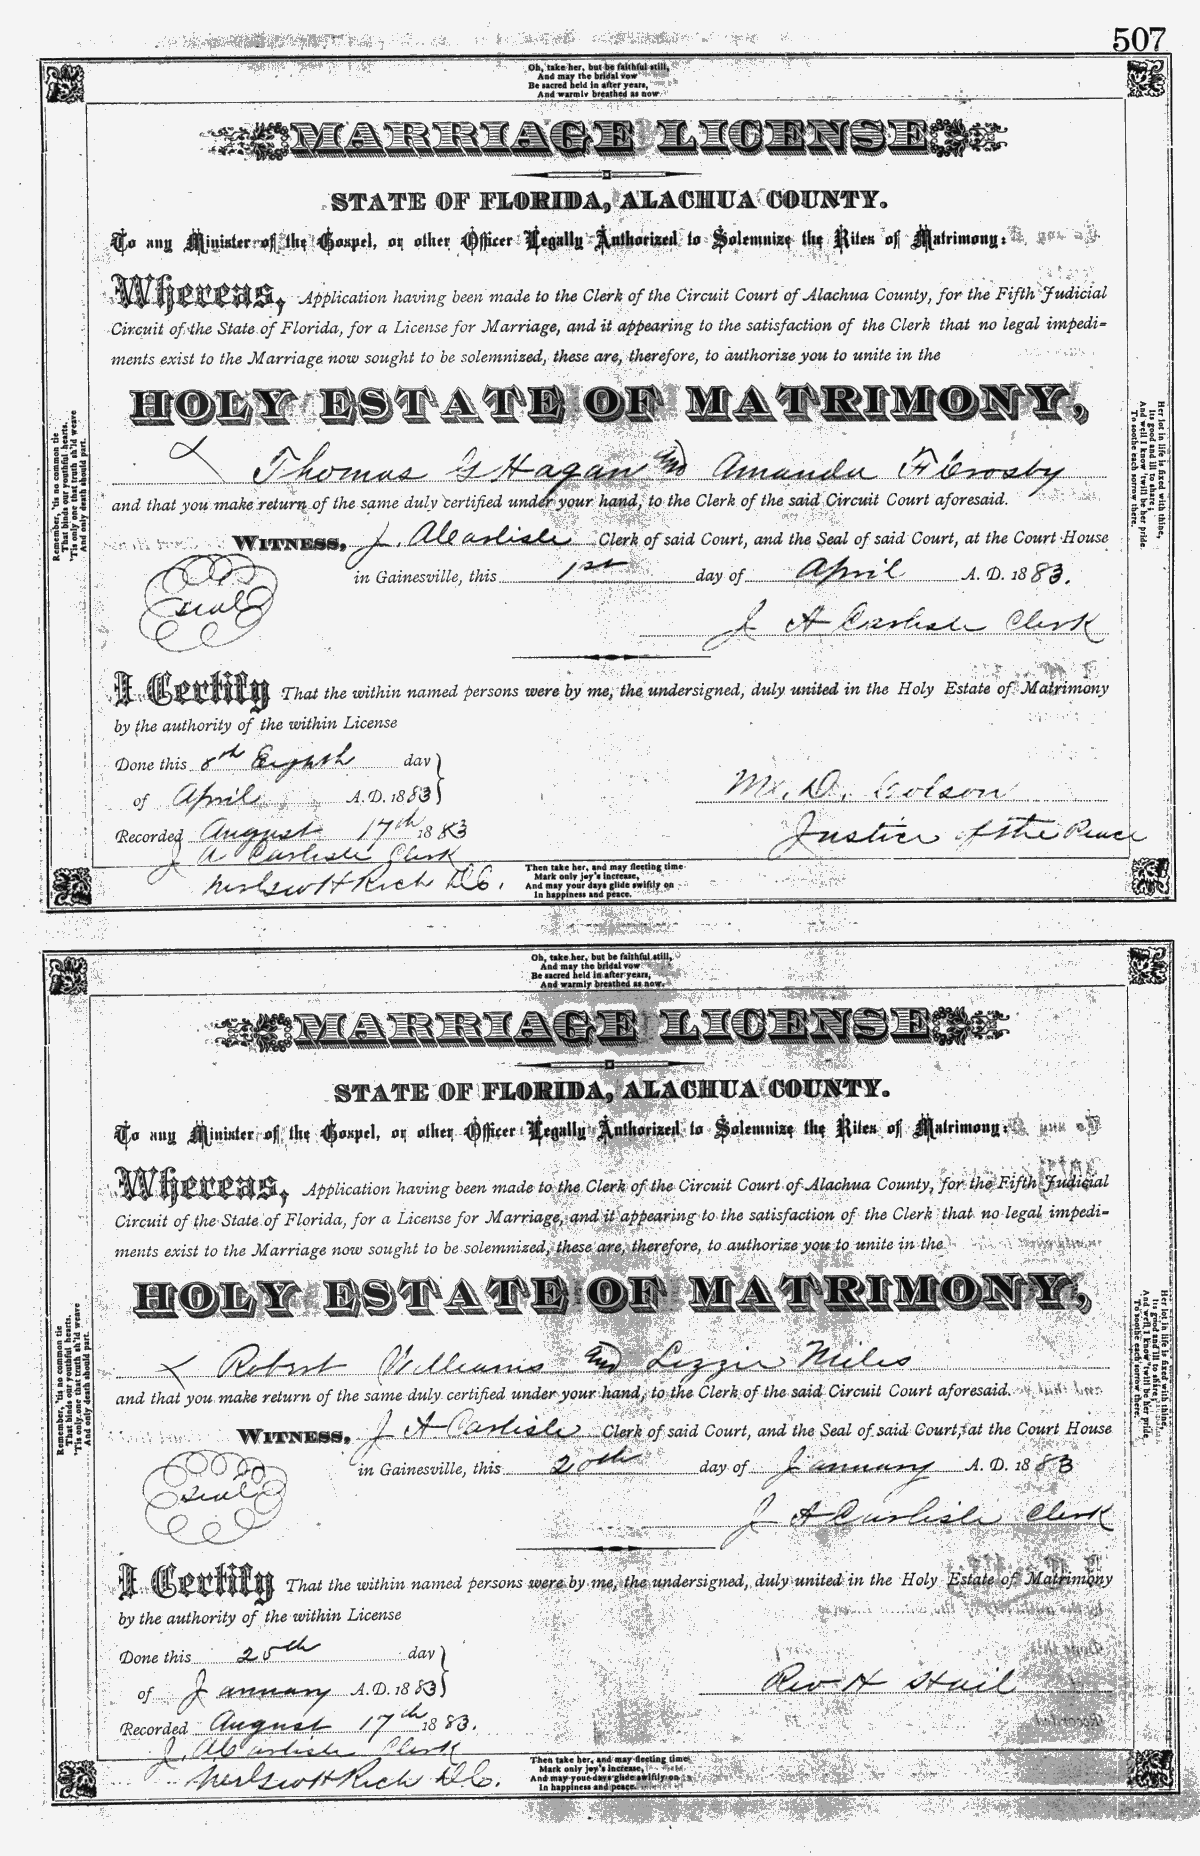 507
Oh, take her, but be faithful still,
And may the bridal vow
Be sacred held in after years,
And warmly breathed as now.
MARRIAGE LICENSE
STATE OF FLORIDA, ALACHUA COUNTY.
To any Minister of the Gospel, or other Officer Legally Authorized to Solemnize the Rites of Matrimony:
Whereas, Application having been made to the Clerk of the Circuit Court of Alachua County, for the Fifth Judicial
Circuit of the State of Florida, for a License for Marriage, and it appearing to the satisfaction of the Clerk that no legal impedi-
ments exist to the Marriage now sought to be solemnized, these are, therefore, to authorize you to unite in the
HOLY ESTATE OF MATRIMONY,
Thomas G Hagan and Amanda F Crosby
and that you make return of the same duly certified under your hand, to the Clerk of the said Circuit Court aforesaid.
WITNESS, J. A Carlisle Clerk of said Court, and the Seal of said Court, at the Court House
in Gainesville, this 1st day of April A. D. 1883.
seal
J A Carlisle Clerk
I Certify That the within named persons were by me, the undersigned, duly united in the Holy Estate of Matrimony
by the authority of the within License
Done this 8th Eighth day
of April A. D. 1883
Wm. D. Colson
Recorded August 17th 1883
Justice of the Peace
J A Carlisle Clerk
Per Geo H Rich D.C.
Remember, 'tis no common tie
That binds our youthful hearts,
'Tis only one that truth sh'ld weave
And only death should part.
Her lot in life is fixed with thine,
Its good and ill to share;
And well I know 'twill be her pride
To soothe each sorrow there.
Then take her, and may fleeting time
Mark only joy's increase,
And may your days glide swiftly on
In happiness and peace.
Oh, take her, but be faithful still,
And may the bridal vow
Be sacred held in after years,
And warmly breathed as now.
MARRIAGE LICENSE
STATE OF FLORIDA, ALACHUA COUNTY.
To any Minister of the Gospel, or other Officer Legally Authorized to Solemnize the Rites of Matrimony:
Whereas, Application having been made to the Clerk of the Circuit Court of Alachua County, for the Fifth Judicial
Circuit of the State of Florida, for a License for Marriage, and it appearing to the satisfaction of the Clerk that no legal impedi-
ments exist to the Marriage now sought to be solemnized, these are, therefore, to authorize you to unite in the
HOLY ESTATE OF MATRIMONY,
Robert Williams and Lizzie Miles
and that you make return of the same duly certified under your hand, to the Clerk of the said Circuit Court aforesaid.
WITNESS, J A Carlisle Clerk of said Court, and the Seal of said Court, at the Court House
in Gainesville, this 20th day of January A. D. 1883
seal
J A Carlisle Clerk
I Certify That the within named persons were by me, the undersigned, duly united in the Holy Estate of Matrimony
by the authority of the within License
Done this 25th day
of January A. D. 1883
Rev H Hail
Recorded August 17th 1883.
J. A Carlisle Clerk
Per Geo H Rich D.C.
Remember, 'tis no common tie
That binds our youthful hearts.
'Tis only one that truth sh'ld weave
And only death should part.
Her lot in life is fixed with thine,
Its good and ill to share;
And well I know 'twill be her pride
To soothe each sorrow there.
Then take her, and may fleeting time
Mark only joy's increase,
And may your days glide swiftly on
In happiness and peace.